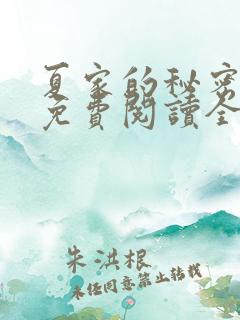 夏家的秘密
免費閱讀全
朱洪根
未经同意禁止转载